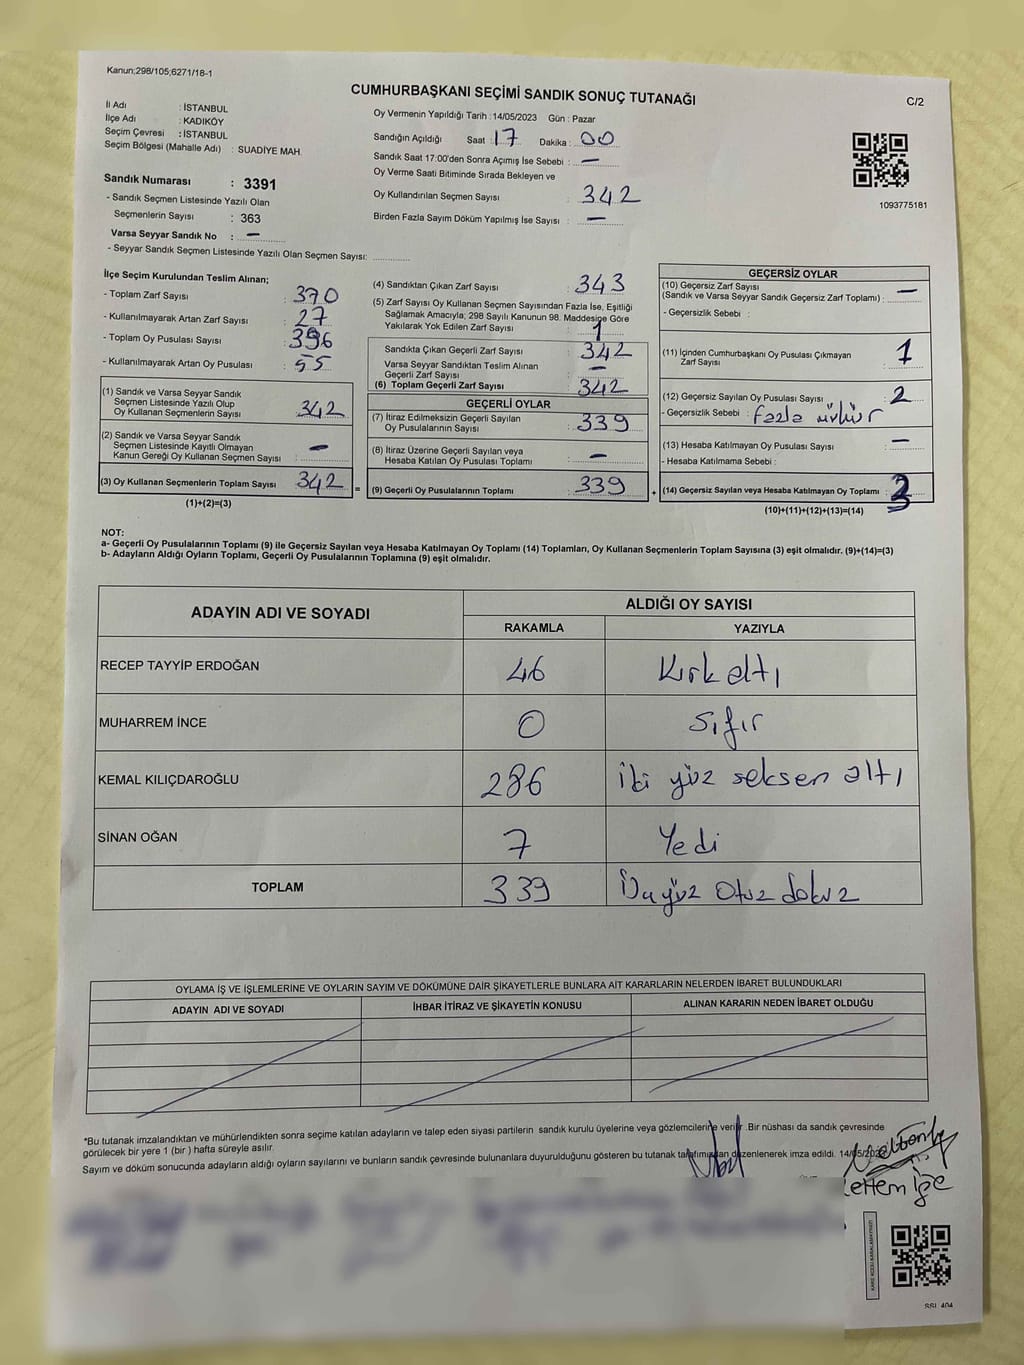 Kanun;298/105;6271/18-1
CUMHURBAŞKANI SEÇİMİ SANDIK SONUÇ TUTANAĞI
C/2
İl Adı : İSTANBUL
İlçe Adı : KADIKÖY
Seçim Çevresi : İSTANBUL
Seçim Bölgesi (Mahalle Adı) : SUADİYE MAH.
Oy Vermenin Yapıldığı Tarih : 14/05/2023 Gün : Pazar
Sandığın Açıldığı Saat : 17 Dakika : 00
Sandık Saat 17:00'den Sonra Açımış İse Sebebi : —
Oy Verme Saati Bitiminde Sırada Bekleyen ve
Oy Kullandırılan Seçmen Sayısı : 342
Birden Fazla Sayım Döküm Yapılmış İse Sayısı : —
1093775181
Sandık Numarası : 3391
- Sandık Seçmen Listesinde Yazılı Olan
Seçmenlerin Sayısı : 363
Varsa Seyyar Sandık No : —
- Seyyar Sandık Seçmen Listesinde Yazılı Olan Seçmen Sayısı:
İlçe Seçim Kurulundan Teslim Alınan;
- Toplam Zarf Sayısı : 370
- Kullanılmayarak Artan Zarf Sayısı : 27
- Toplam Oy Pusulası Sayısı : 396
- Kullanılmayarak Artan Oy Pusulası : 55
(1) Sandık ve Varsa Seyyar Sandık
Seçmen Listesinde Yazılı Olup
Oy Kullanan Seçmenlerin Sayısı : 342
(2) Sandık ve Varsa Seyyar Sandık
Seçmen Listesinde Kayıtlı Olmayan
Kanun Gereği Oy Kullanan Seçmen Sayısı : —
(3) Oy Kullanan Seçmenlerin Toplam Sayısı : 342 =
(1)+(2)=(3)
(4) Sandıktan Çıkan Zarf Sayısı : 343
(5) Zarf Sayısı Oy Kullanan Seçmen Sayısından Fazla İse, Eşitliği
Sağlamak Amacıyla; 298 Sayılı Kanunun 98. Maddesine Göre
Yakılarak Yok Edilen Zarf Sayısı : 1
Sandıkta Çıkan Geçerli Zarf Sayısı : 342
Varsa Seyyar Sandıktan Teslim Alınan
Geçerli Zarf Sayısı : —
(6) Toplam Geçerli Zarf Sayısı : 342
GEÇERLİ OYLAR
(7) İtiraz Edilmeksizin Geçerli Sayılan
Oy Pusulalarının Sayısı : 339
(8) İtiraz Üzerine Geçerli Sayılan veya
Hesaba Katılan Oy Pusulası Toplamı : —
(9) Geçerli Oy Pusulalarının Toplamı : 339 +
GEÇERSİZ OYLAR
(10) Geçersiz Zarf Sayısı
(Sandık ve Varsa Seyyar Sandık Geçersiz Zarf Toplamı) : —
- Geçersizlik Sebebi :
(11) İçinden Cumhurbaşkanı Oy Pusulası Çıkmayan
Zarf Sayısı : 1
(12) Geçersiz Sayılan Oy Pusulası Sayısı : 2
- Geçersizlik Sebebi : fazla mühür
(13) Hesaba Katılmayan Oy Pusulası Sayısı : —
- Hesaba Katılmama Sebebi :
(14) Geçersiz Sayılan veya Hesaba Katılmayan Oy Toplamı : 3
(10)+(11)+(12)+(13)=(14)
NOT:
a- Geçerli Oy Pusulalarının Toplamı (9) ile Geçersiz Sayılan veya Hesaba Katılmayan Oy Toplamı (14) Toplamları, Oy Kullanan Seçmenlerin Toplam Sayısına (3) eşit olmalıdır. (9)+(14)=(3)
b- Adayların Aldığı Oyların Toplamı, Geçerli Oy Pusulalarının Toplamına (9) eşit olmalıdır.
ADAYIN ADI VE SOYADI ALDIĞI OY SAYISI
RAKAMLA YAZIYLA
RECEP TAYYİP ERDOĞAN 46 Kırk altı
MUHARREM İNCE 0 Sıfır
KEMAL KILIÇDAROĞLU 286 iki yüz seksen altı
SİNAN OĞAN 7 Yedi
TOPLAM 339 otuz dokuz
OYLAMA İŞ VE İŞLEMLERİNE VE OYLARIN SAYIM VE DÖKÜMÜNE DAİR ŞİKAYETLERLE BUNLARA AİT KARARLARIN NELERDEN İBARET BULUNDUKLARI
ADAYIN ADI VE SOYADI İHBAR İTİRAZ VE ŞİKAYETİN KONUSU ALINAN KARARIN NEDEN İBARET OLDUĞU
*Bu tutanak imzalandıktan ve mühürlendikten sonra seçime katılan adayların ve talep eden siyasi partilerin sandık kurulu üyelerine veya gözlemcilerine verilir .Bir nüshası da sandık çevresinde
görülecek bir yere 1 (bir ) hafta süreyle asılır.
Sayım ve döküm sonucunda adayların aldığı oyların sayılarını ve bunların sandık çevresinde bulunanlara duyurulduğunu gösteren bu tutanak tarafımızdan düzenlenerek imza edildi. 14/05/2023
SSL 404